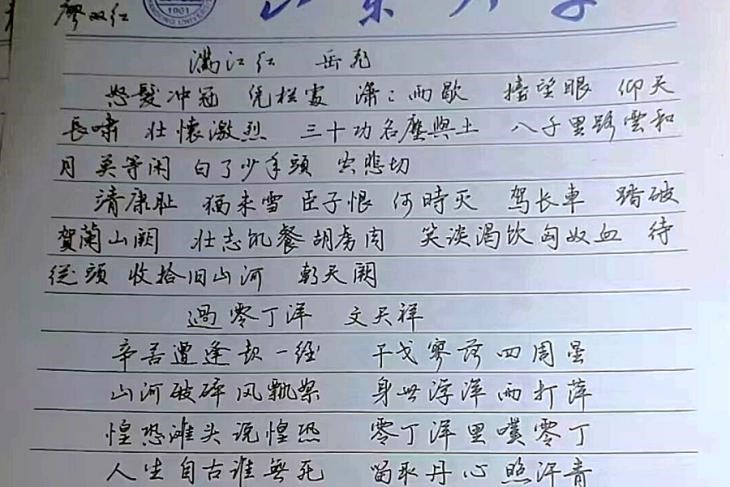 廖双红
1901
山东大学
满江红 岳飞
怒髮冲冠 凭栏处 潇:而歇 抬望眼 仰天
長嘯 壮懷激烈 三十功名塵與土 八千里路雲和
月 莫等闲 白了少年頭 空悲切
清康耻 猶未雪 臣子恨 何時灭 驾长車 踏破
賀蘭山阙 壮志飢餐胡虏肉 笑谈渴饮匈奴血 待
從頭 收拾旧山河 朝天阙
過零丁洋 文天祥
辛苦遭逢起一经 干戈寥落四周星
山河破碎风飘絮 身世浮洋雨打萍
惶恐滩头说惶恐 零丁洋里嘆零丁
人生自古谁無死 留取丹心照汗青